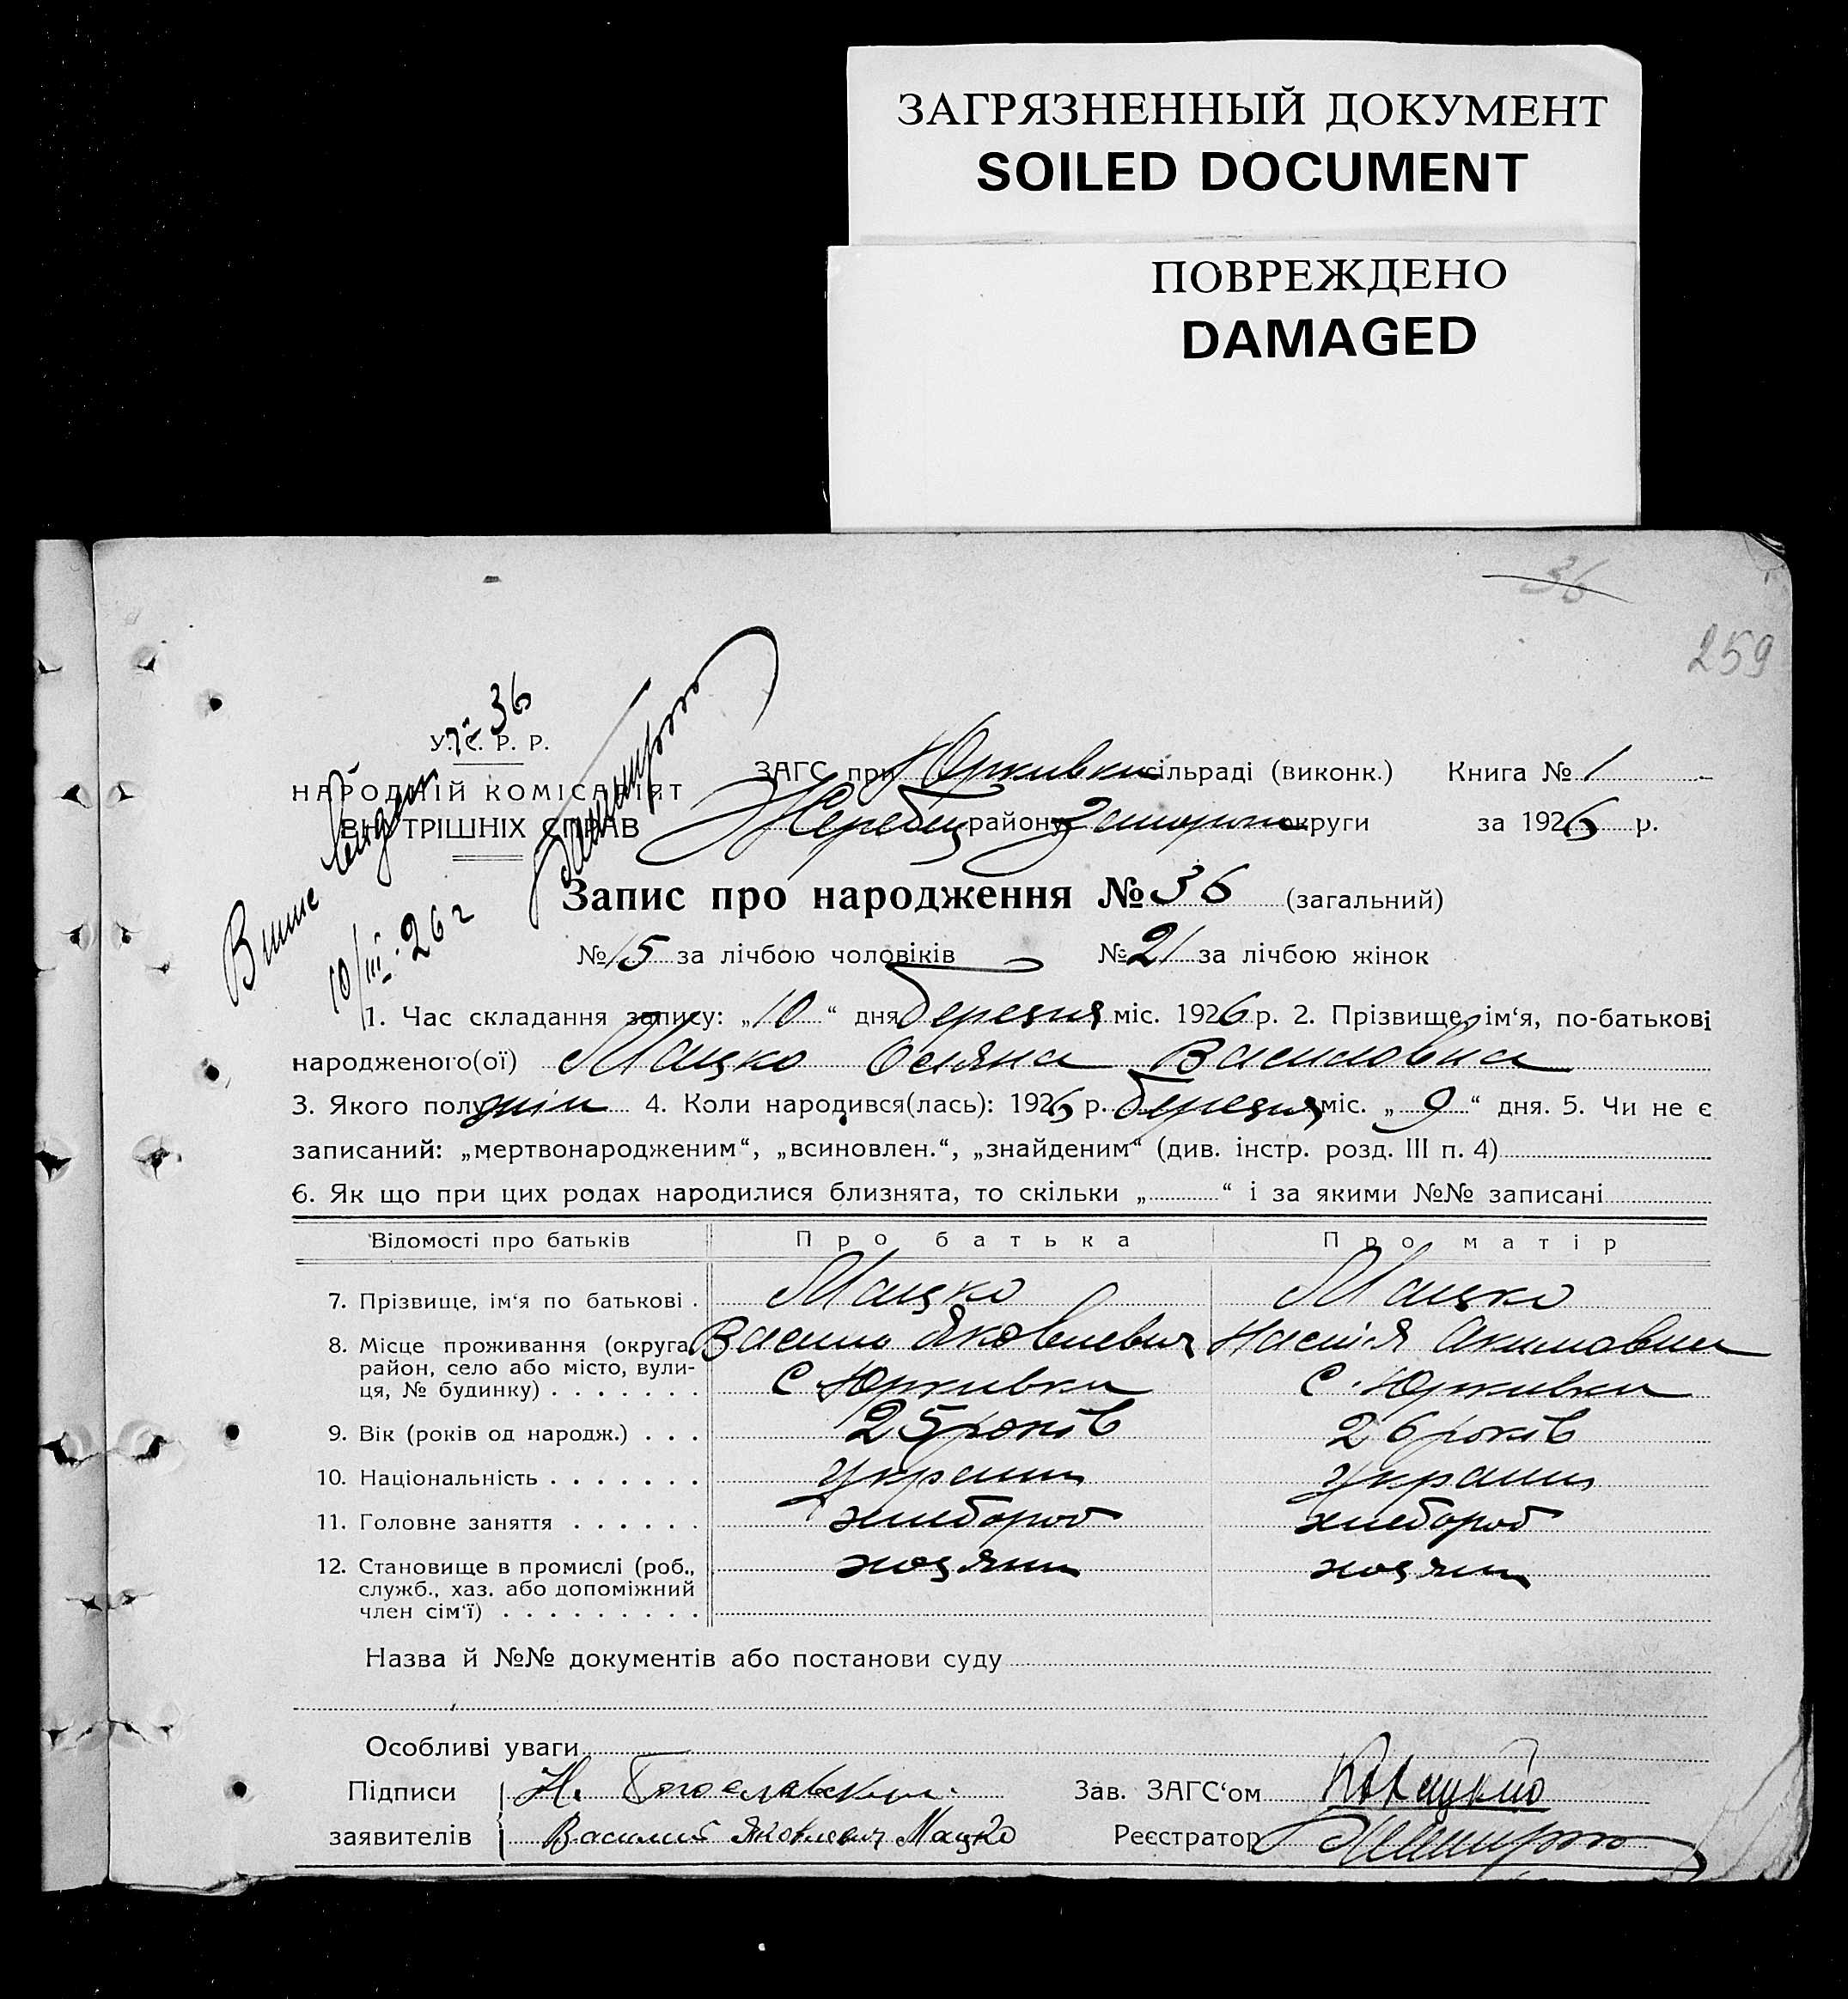 ЗАГРЯЗНЕННЫЙ ДОКУМЕНТ
SOILED DOCUMENT
ПОВРЕЖДЕНО
DAMAGED
36
259
№ 36
У. С. Р. Р.
НАРОДНІЙ КОМІСАРІЯТ
ВНУТРІШНІХ СПРАВ
10/III-26 г
ЗАГС при Юрківки сільраді (виконк.) Книга № 1
Жеребец району Запоріж округи за 1926 р.
Запис про народження № 36 (загальний)
№ 15 за лічбою чоловіків № 21 за лічбою жінок
1. Час складання запису: „10“ дня березня міс. 1926 р. 2. Прізвище, ім‘я, по-батькові
народженого(ої) Мацко Василовна
3. Якого полу жін 4. Коли народився(лась): 1926 р. березня міс. „9“ дня. 5. Чи не є
записаний: „мертвонародженим“, „всиновлен.“, „знайденим“ (див. інстр. розд. III п. 4)
6. Як що при цих родах народилися близнята, то скільки „ “ і за якими №№ записані
Відомості про батьків Про батька Про матір
7. Прізвище, ім‘я по батькові . Мацко Мацко
Василь Яковлевич Настя Акимовна
8. Місце проживання (округа, район, село або місто, вули-ця, № будинку) . . . . . . . с Юркивка с. Юркивка
9. Вік (років од народж.) . . . 25 років 26 років
10. Національність . . . . . . . україн україн
11. Головне заняття . . . . . . хлебороб хлебороб
12. Становище в промислі (роб., служб., хаз. або допоміжний член сім‘ї) . . . . . . . . . хозяин хозяин
Назва й №№ документів або постанови суду
Особливі уваги
Підписи Н. Богославский Зав. ЗАГС‘ом
заявителів Василий Яковлевич Мацко Реєстратор